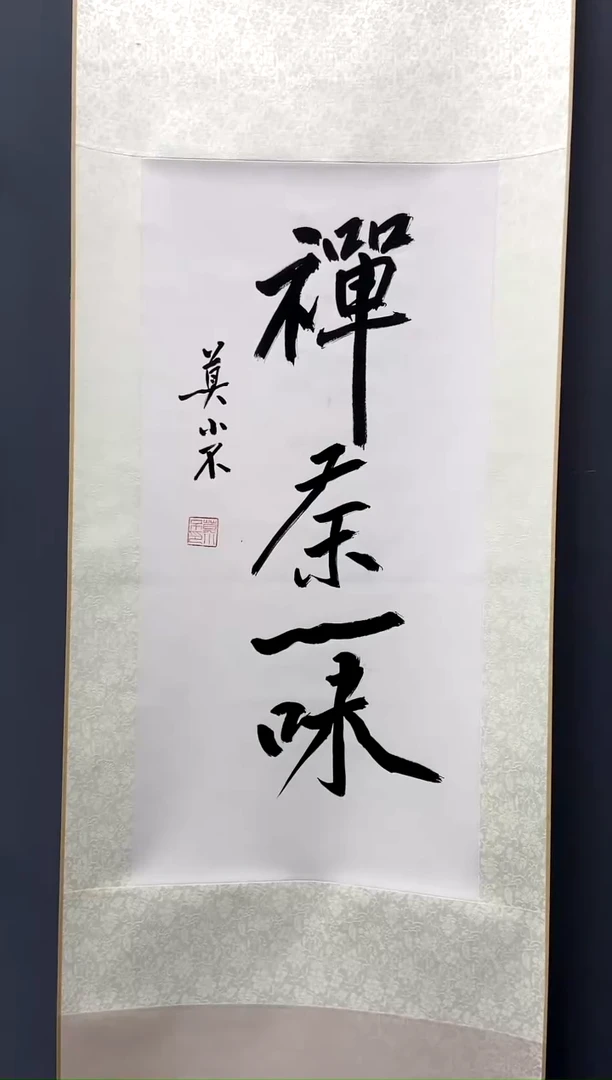 禪茶一味
莫小不